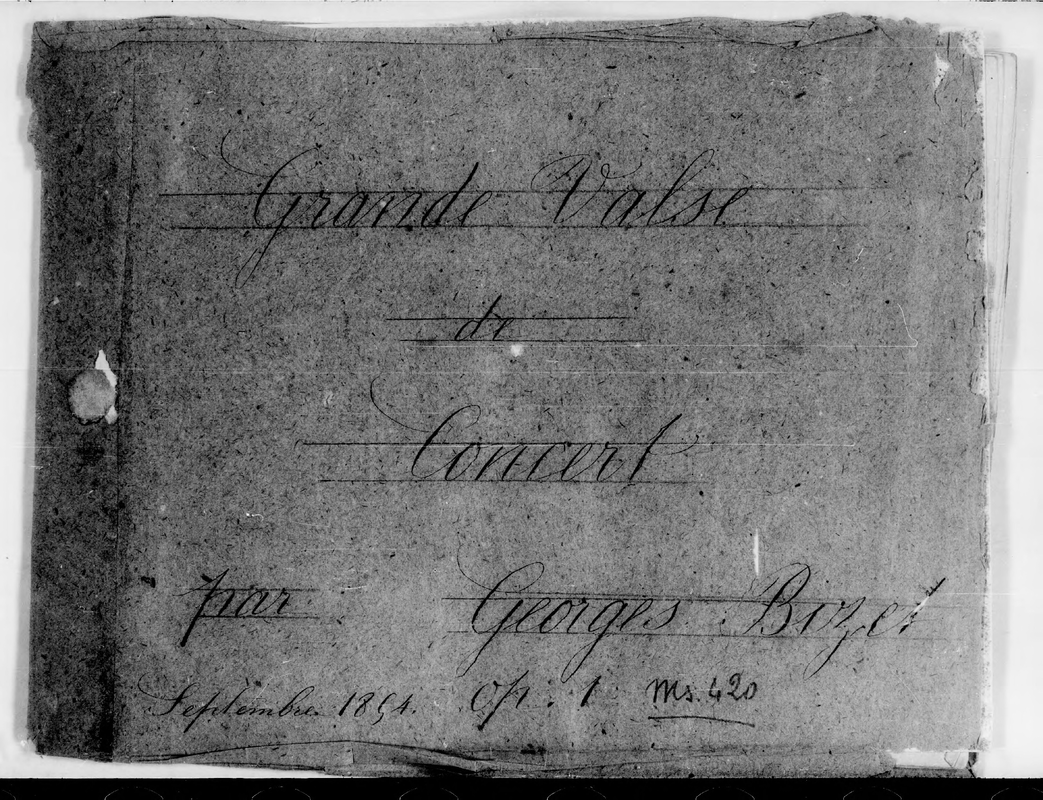 Grande Valse
de
Concert
par Georges Bizet
Septembre 1854. Op: 1 Ms. 420